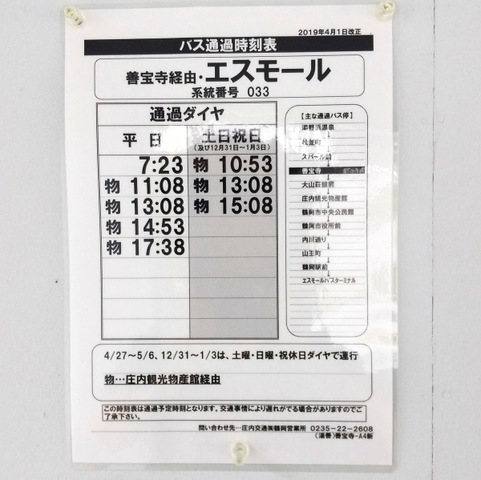 2019年4月1日改正
バス通過時刻表
善宝寺経由・エスモール
系統番号 033
通過ダイヤ
平 日
土日祝日
(及び12月31日～1月3日)
7:23
物 10:53
物 11:08
物 13:08
物 13:08
物 15:08
物 14:53
物 17:38
【主な通過バス停】
湯野浜温泉
スパール前
善宝寺
大山荘銀前
庄内観光物産館
鶴岡市中央公民館
鶴岡市役所前
内川通り
山王町
鶴岡駅前
エスモールバスターミナル
4/27～5/6、12/31～1/3は、土曜・日曜・祝休日ダイヤで運行
物…庄内観光物産館経由
この時刻表は通過予定時刻となります。交通事情により遅れがでる場合がありますのでご
了承下さい。
問い合わせ先…庄内交通㈱鶴岡営業所 0235-22-2608
(湯善)善宝寺-A4新